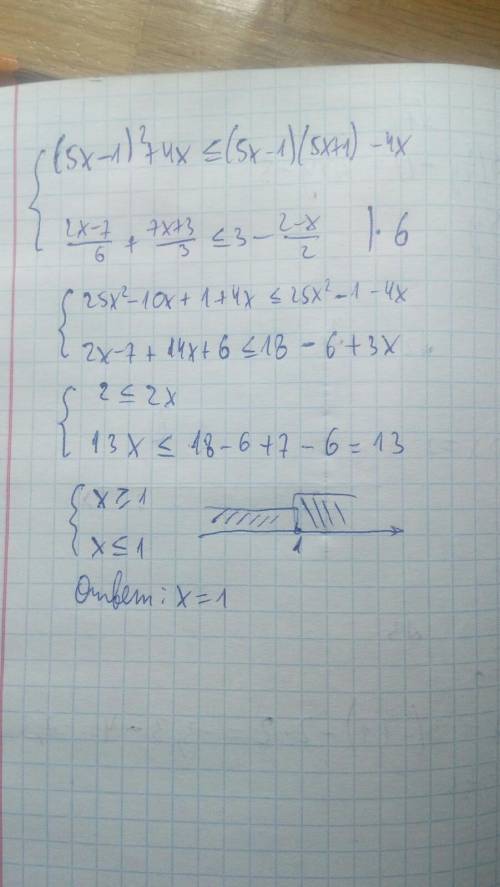 { (5x-1)²+4x ≤ (5x-1)(5x+1) - 4x
{ (2x-7)/6 + (7x+3)/3 ≤ 3 - (2-x)/2 | · 6
{ 25x²-10x+1+4x ≤ 25x²-1-4x
{ 2x-7+14x+6 ≤ 18-6+3x
{ 2 ≤ 2x
{ 13x ≤ 18-6+7-6=13
{ x ≥ 1
{ x ≤ 1
1
Ответ: x=1